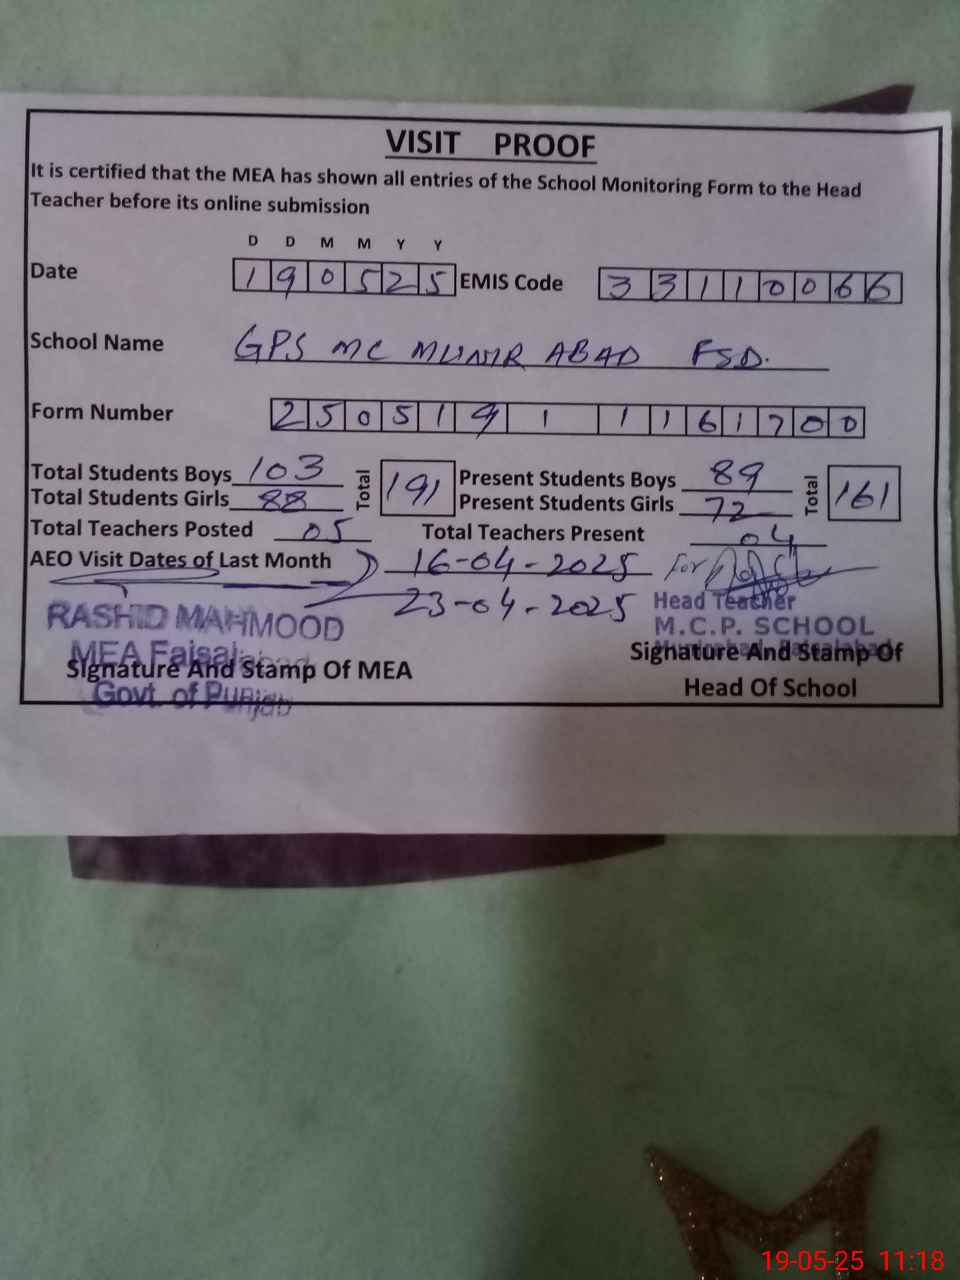 VISIT PROOF
It is certified that the MEA has shown all entries of the School Monitoring Form to the Head
Teacher before its online submission
D D M M Y Y
Date 1 9 0 5 2 5 EMIS Code 3 3 1 1 0 0 6 6
School Name GPS MC MUNIR ABAD FSD.
Form Number 2 5 0 5 1 9 1 1 1 6 1 7 0 0
Total Students Boys 103 Total 191 Present Students Boys 89 Total 161
Total Students Girls 88 Present Students Girls 72
Total Teachers Posted 05 Total Teachers Present 04
AEO Visit Dates of Last Month 16-04-2025 For
23-04-2025 Head Teacher
RASHID MAHMOOD M.C.P. SCHOOL
MEA Faisalabad
Signature And Stamp Of MEA Signature And Stamp Of
Govt. of Punjab Head Of School
19-05-25 11:18